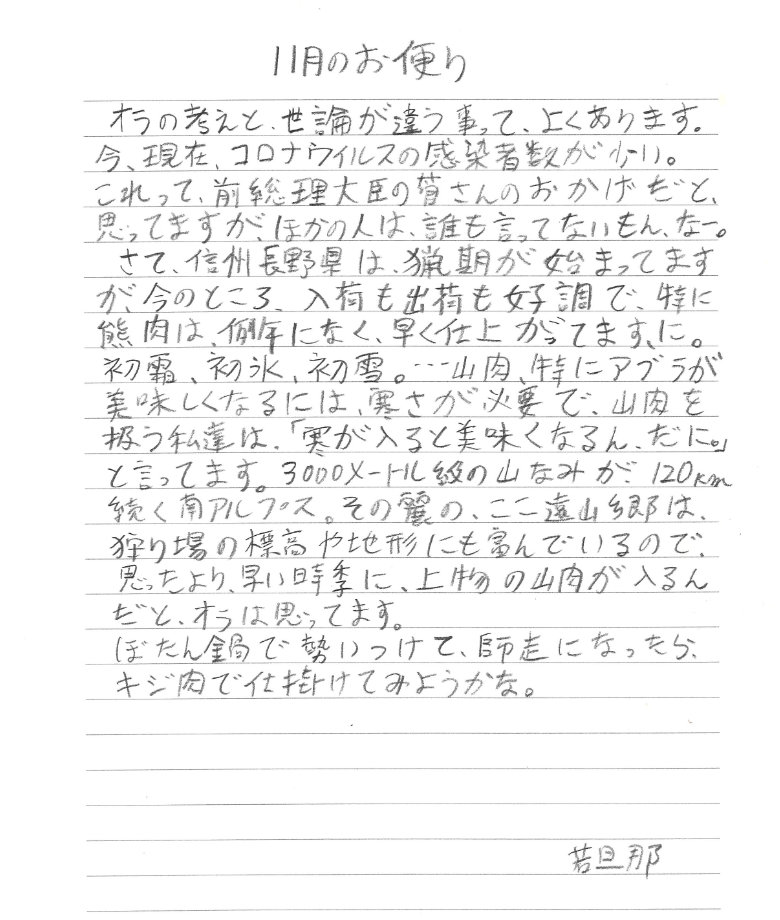 11月のお便り
オラの考えと、世論が違う事って、よくあります。
今、現在、コロナウイルスの感染者数が少い。
これって、前総理大臣の菅さんのおかげだと、
思ってますが、ほかの人は、誰も言ってないもん、なー。
さて、信州長野県は、猟期が始まってます
が、今のところ、入荷も出荷も好調で、特に
熊肉は、例年になく、早く仕上がってます、に。
初霜、初氷、初雪。…山肉、特にアブラが
美味しくなるには、寒さが必要で、山肉を
扱う私達は、「寒が入ると美味くなるん、だに。」
と言ってます。3000メートル級の山なみが、120km
続く南アルプス。その麗の、ここ遠山郷は、
狩り場の標高や地形にも富んでいるので、
思ったより、早い時季に、上物の山肉が入るん
だと、オラは思ってます。
ぼたん鍋で勢いつけて、師走になったら、
キジ肉で仕掛けてみようかな。
若旦那